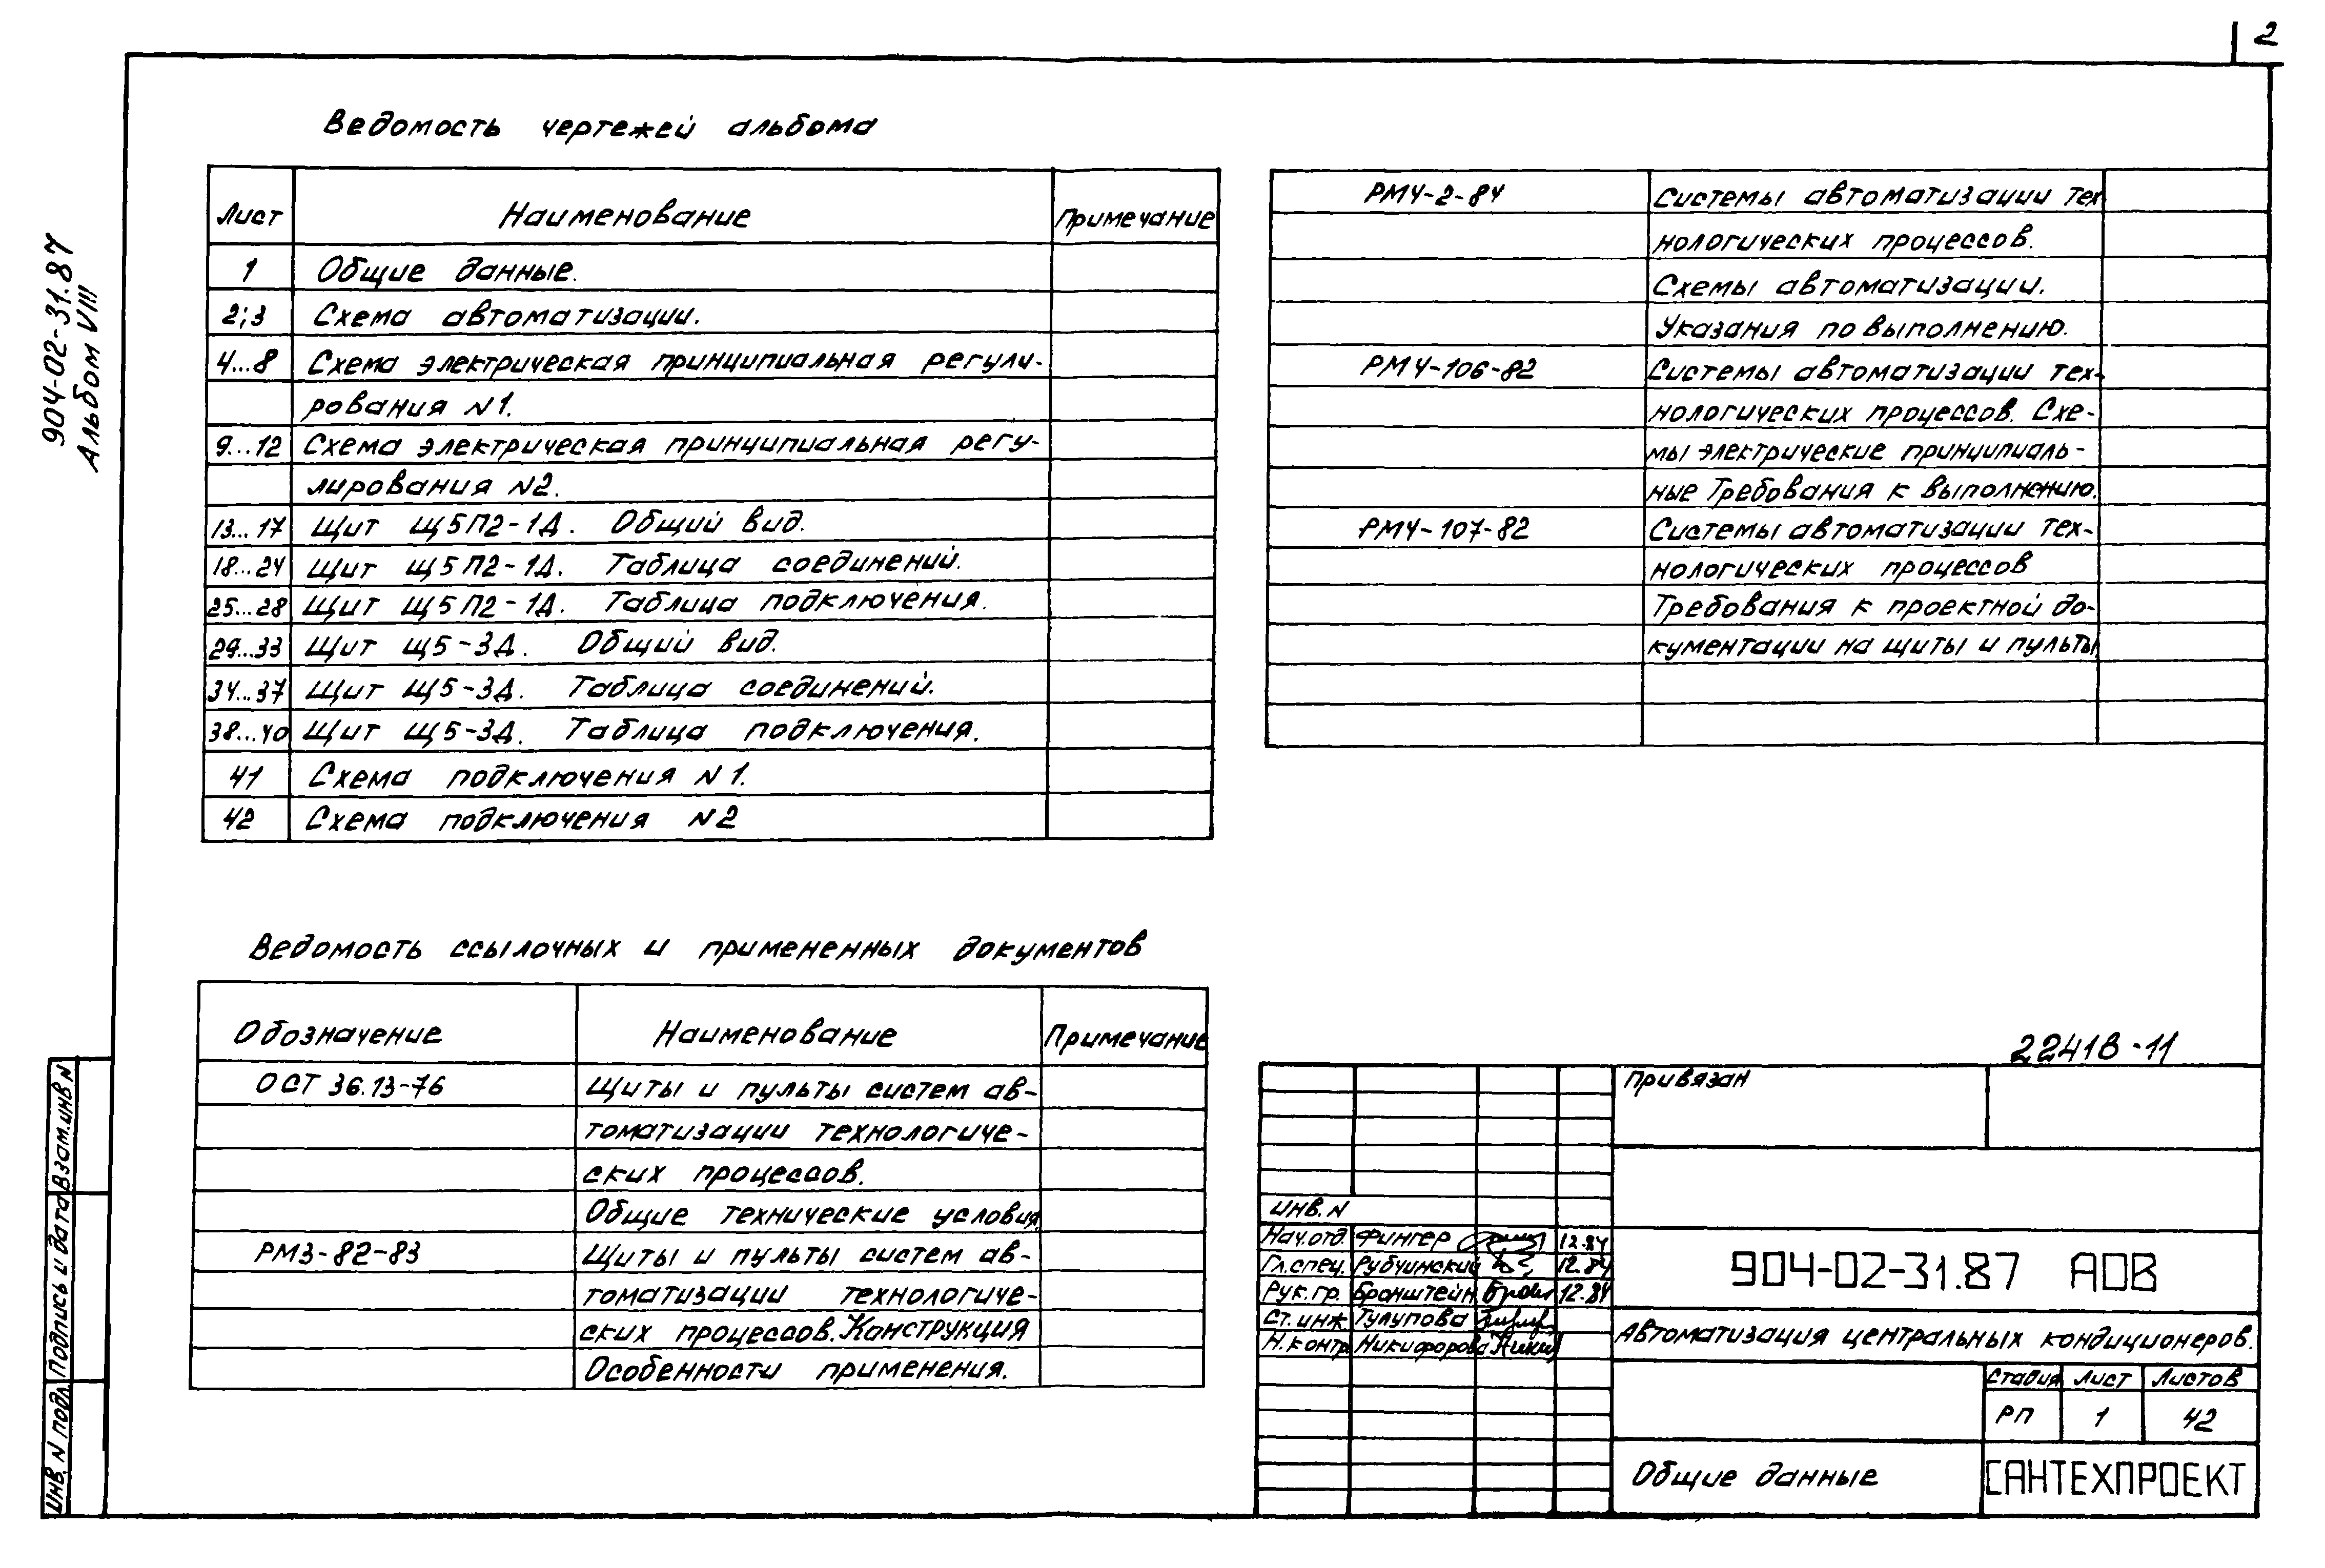 2
904-02-31.87
Альбом VIII
Ведомость чертежей альбома
Лист Наименование Примечание
1 Общие данные.
2;3 Схема автоматизации.
4...8 Схема электрическая принципиальная регули-
рования N1.
9...12 Схема электрическая принципиальная регу-
лирования N2.
13...17 Щит Щ5П2-1Д. Общий вид.
18...24 Щит Щ5П2-1Д. Таблица соединений.
25...28 Щит Щ5П2-1Д. Таблица подключения.
29...33 Щит Щ5-3Д. Общий вид.
34...37 Щит Щ5-3Д. Таблица соединений.
38...40 Щит Щ5-3Д. Таблица подключения.
41 Схема подключения N1.
42 Схема подключения N2
РМ4-2-84 Системы автоматизации тех
нологических процессов.
Схемы автоматизации.
Указания по выполнению.
РМ4-106-82 Системы автоматизации тех-
нологических процессов. Схе-
мы электрические принципиаль-
ные Требования к выполнению.
РМ4-107-82 Системы автоматизации тех-
нологических процессов
Требования к проектной до-
кументации на щиты и пульты
Ведомость ссылочных и примененных документов
Обозначение Наименование Примечание
ОСТ 36.13-76 Щиты и пульты систем ав-
томатизации технологиче-
ских процессов.
Общие технические условия.
РМ3-82-83 Щиты и пульты систем ав-
томатизации технологиче-
ских процессов. Конструкция
Особенности применения.
Взам.инв N
Подпись и дата
Инв. N подл.
22418-11
Привязан
Инв. N
Нач.отд. Фингер 12.84
Гл.спец. Рубчинский 12.84
Рук.гр. Бронштейн 12.84
Ст.инж Тулупова
Н.контр Никифорова
904-02-31.87 АОВ
Автоматизация центральных кондиционеров.
Стадия Лист Листов
РП 1 42
Общие данные
САНТЕХПРОЕКТ